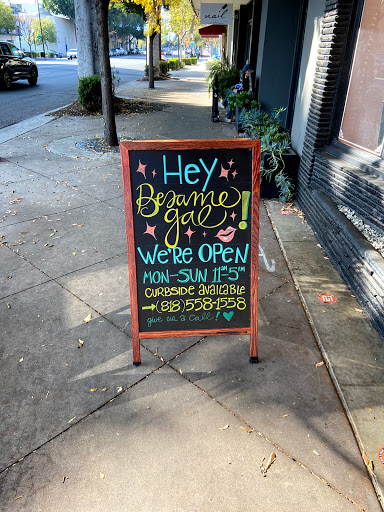 nail
Hey
Besame
gal!
We're Open
MON-SUN 11AM-5PM
CURBSIDE AVAILABLE
→(818)558-1558
give us a call!